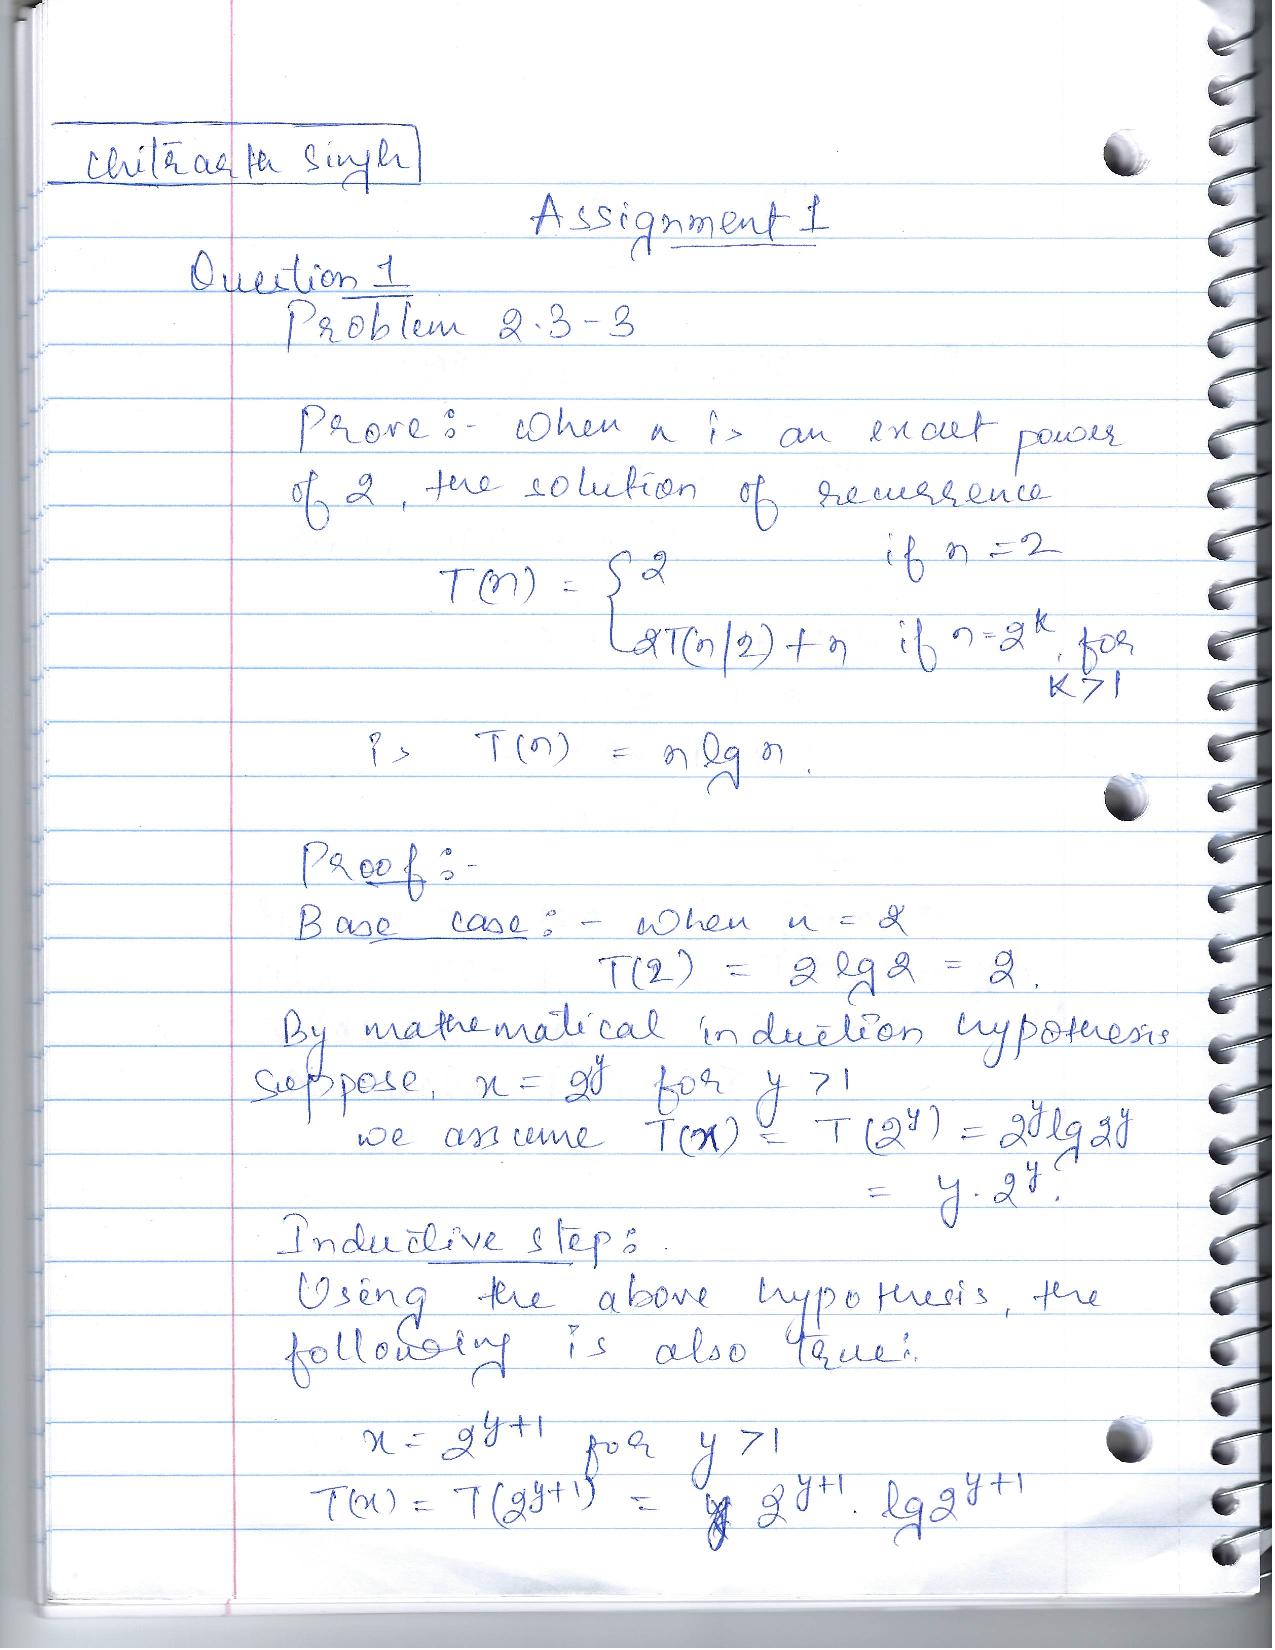 Chitraarth Singh
Assignment 1
Question 1
Problem 2.3-3
Prove:- when n is an exact power
of 2, the solution of recurrence
T(n) = { 2 if n = 2
2T(n/2) + n if n = 2^k, for
k > 1
is T(n) = n lg n.
Proof:-
Base case:- when n = 2
T(2) = 2 lg 2 = 2.
By mathematical induction hypothesis
suppose, x = 2^y for y > 1
we assume T(x) = T(2^y) = 2^y lg 2^y
= y . 2^y.
Inductive step:
Using the above hypothesis, the
following is also true:
x = 2^{y+1} for y > 1
T(x) = T(2^{y+1}) = 2^{y+1} . lg 2^{y+1}